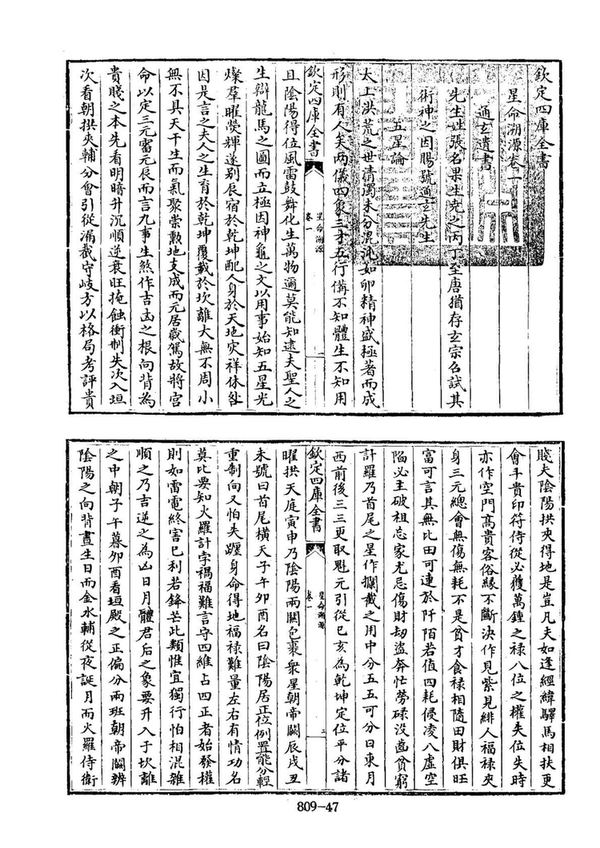 欽定四庫全書
星命溯源卷一
通玄遺書
先生姓張名果生兗之丙丁至唐猶存玄宗召試其
術神之因賜號通玄先生
五星論
太上洪荒之世清濁未分混沌如卵精神盛極著而成
形則有人矣两儀四象三才五行備不知體生不知用
欽定四庫全書
星命溯源
卷一
一
且陰陽得位風雷鼓舞化生萬物邇莫能知逮夫聖人之
生辯龍馬之圖而立極因神龜之文以用事始知五星光
燦羣曜熒輝遂别辰宿於乾坤配人身於天地灾祥休咎
因是言之夫人之生育於乾坤覆載於坎離大無不周小
無不具天干生而氣聚崇勲地支成而元居戚駕故將宫
命以定三元富元辰而言九事生煞作吉凶之根向背為
貴賤之本先看明暗升沉順逆衰旺掩蝕衝制失次入垣
次看朝拱夾輔分會引從漏截守岐方以格局考評貴
賤夫陰陽拱夾得地是豈凡夫如逢經緯驛馬相扶更
會手貴印符侍從必獲萬鍾之禄八位之權失位失時
亦作空門髙貴客俗緣不斷決作見紫見緋人福禄夾
身三元總會無傷無耗不是貧才食禄相隨田財俱旺
富可言其無比田可連於阡陌若值四耗侵凌八虚空
陷必主破祖忘家尤忌傷財劫盗奔忙勞碌没齒貧窮
計羅乃首尾之星作攔截之用中分五五可分日東月
西前後三三更取魁元引從巳亥為乾坤定位平分諸
欽定四庫全書
星命溯源
卷一
二
曜拱天庭寅申乃陰陽兩闗包褁衆星朝帝闕辰戌丑
未號曰首尾橫天子午卯酉名曰陰陽居正位例置能分輕
重制向又怕失躔身命得地福禄難量左右有情功名
莫比要知火羅計孛禍福難言守四維占四正者始發權
則如雷電終害已利若鋒芒此類惟宜獨行怕相混雜
順之乃吉逆之為凶日月體君后之象要升入于坎離
之中朝子午暮卯酉看垣殿之正偏分兩班朝帝闕辨
陰陽之向背晝生日而金水輔從夜誕月而火羅侍衞
809-47